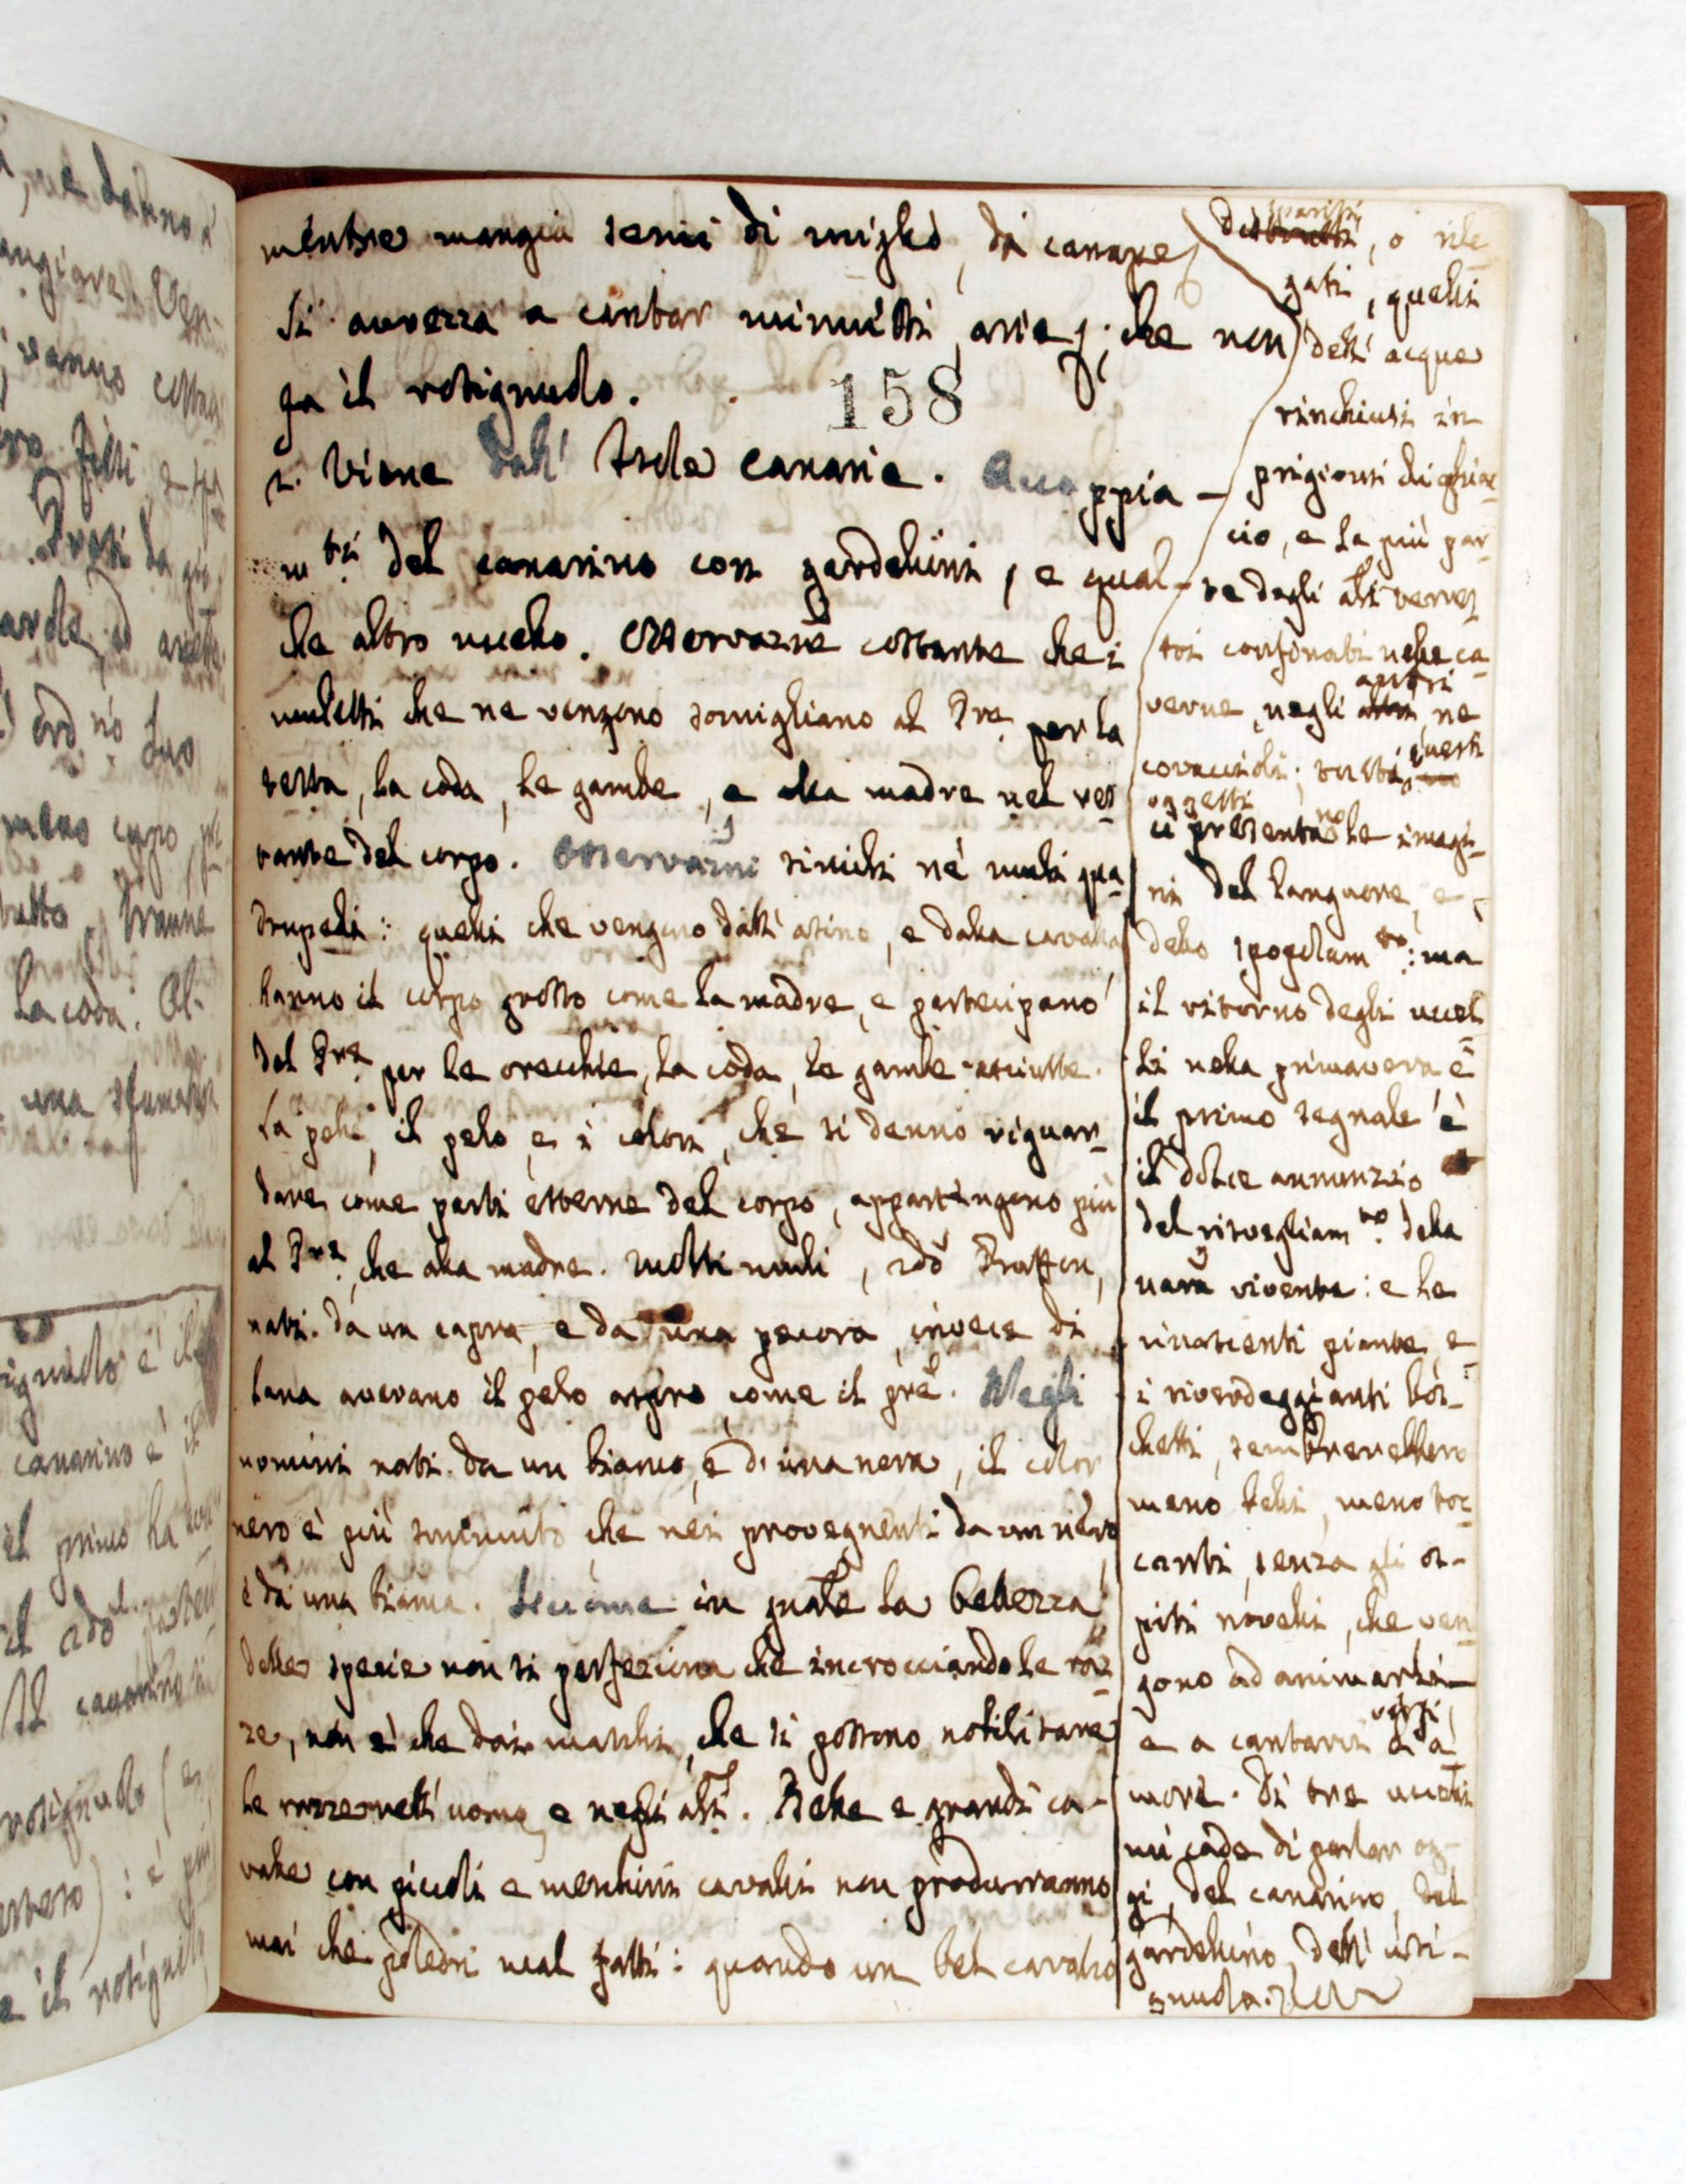 mentre mangia semi di miglio, di canape
si avvezza a cantar minuetti, arie; che non
fa il rosignuolo.
158
2. Viene dall' Isole Canarie. Accoppia-
m.ti del canarino con gardellini, e qual-
che altro uccello. Osservazne costante che i
muletti che ne vengono somigliano al Pre per la
testa, la coda, le gambe, e alla madre nel res
tante del corpo. Osservazni simili ne' muli qua
drupedi: quelli che vengono dall' asino, e dalla cavalla
hanno il corpo grosso come la madre, e partecipano
del Pre per le orecchie, la coda, le gambe asciutte.
La pelle, il pelo, e i colori, che si denno riguar-
dare come parti esterne del corpo, appartengono più
al Pre, che alla madre. Molti muli, sdo Buffon,
nati da un capro, e da una pecora, invece di
lana avevano il pelo aspro come il pre. Negli
uomini nati da un bianco, e d una nera, il color
nero è più che nei provegnenti da un nero
e da una bianca. Siccome in gnale la bellezza
delle specie non si perfeziona che incrocciando le raz
ze, non è che dai maschi, che si possono nobilitare
le razze nell' uomo, e negli alti. Belle e grandi ca-
valle con piccoli e meschini cavalli non produrranno
mai che poledri mal fatti: quando un bel cavallo
spariti
, o rile
gati, quelli
dell' acque
rinchiusi in
prigioni di ghiac
cio, e la più par-
te degli alti terres
tri confinati nelle ca
verne, negli antri ne
covaccioli; tutti questi
oggetti
ci presentano le imagi-
ni del languore, e
dello spopolam.to: ma
il ritorno degli uccel
li nella primavera è
il primo segnale è
il dolce annunzio
del risvegliam.to della
nara vivente: e le
rinascenti piante, e
i riverdeggianti bos-
chetti, sembrerebbero
meno belli, meno toc
canti, senza gli os-
piti novelli, che ven
gono ad animarli
e a cantarvi versi d'a
more. Di tre uccelli
mi cade di parlar og-
gi, del canarino, del
gardellino, dell' usi-
gnuolo.